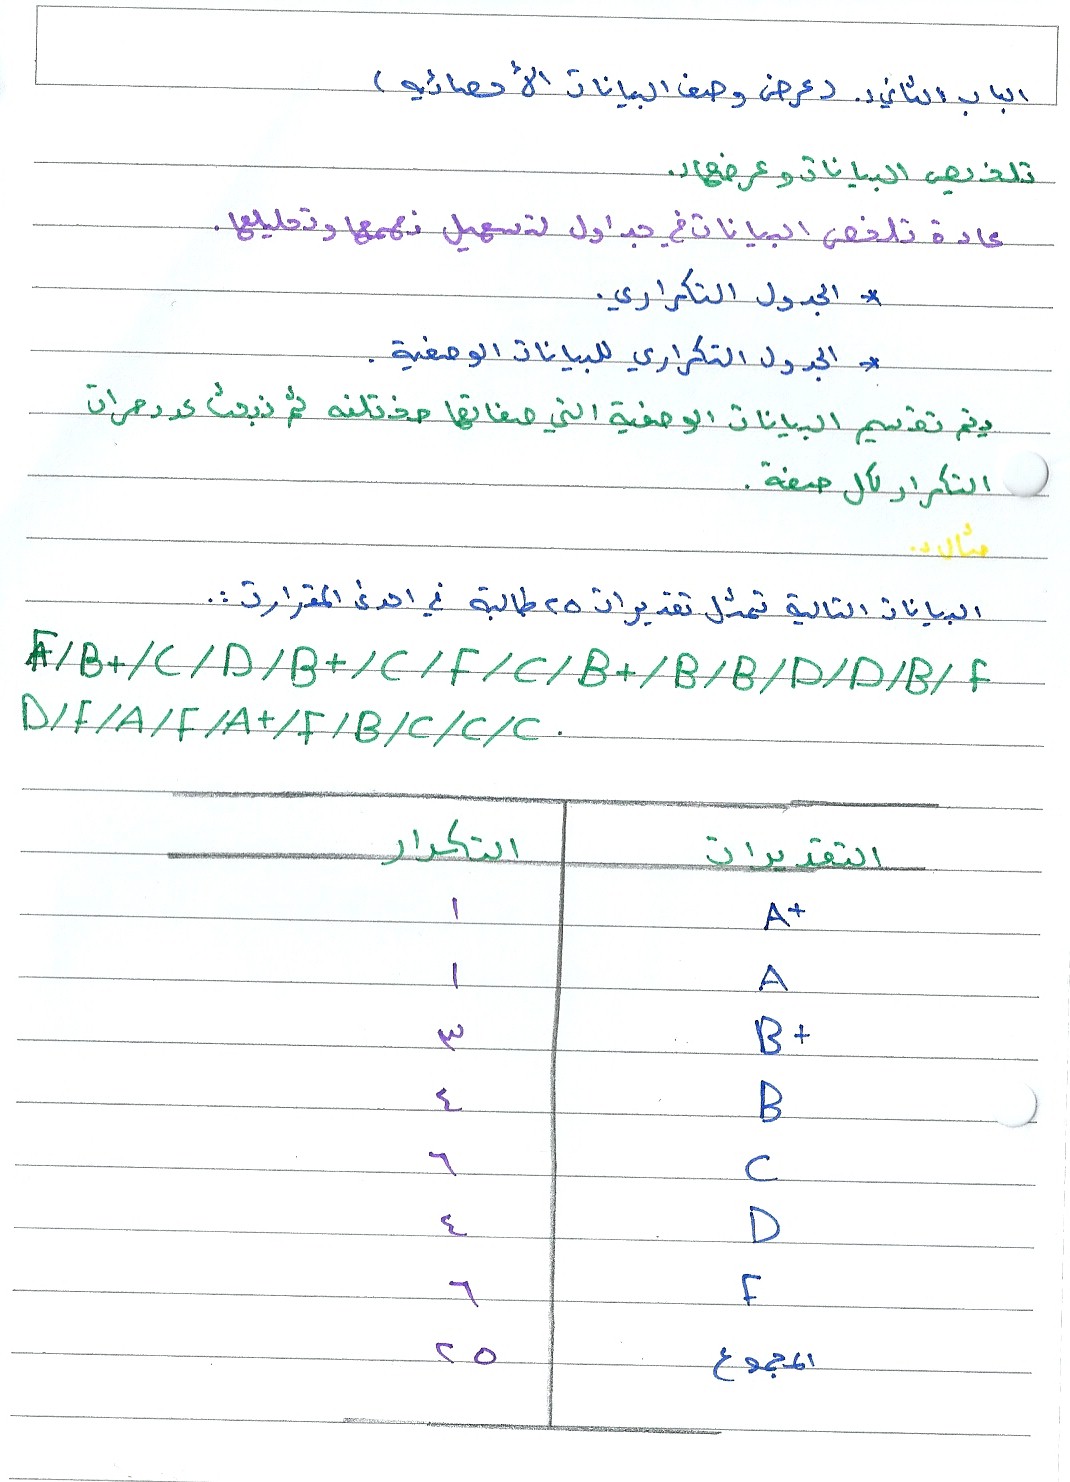 الباب الثاني: (عرض وصف البيانات الأحصائيه)
تلخيص البيانات وعرضها:
عادة تلخص البيانات في جداول لتسهيل فهمها وتحليلها.
* الجدول التكراري.
* الجدول التكراري للبيانات الوصفية.
يتم تقسيم البيانات الوصفية التي صفاتها مختلفه ثم نبحث عدد مرات
التكرار لكل صفة.
مثال:
البيانات التالية تمثل تقديرات ٢٥ طالبة في احدى المقرارت :.
F/B+/C/D/B+/C/F/C/B+/B/B/D/D/B/F
D/F/A/F/A+/F/B/C/C/C.
التقديرات التكرار
A+ ١
A ١
B+ ٣
B ٤
C ٦
D ٤
F ٦
المجموع ٢٥